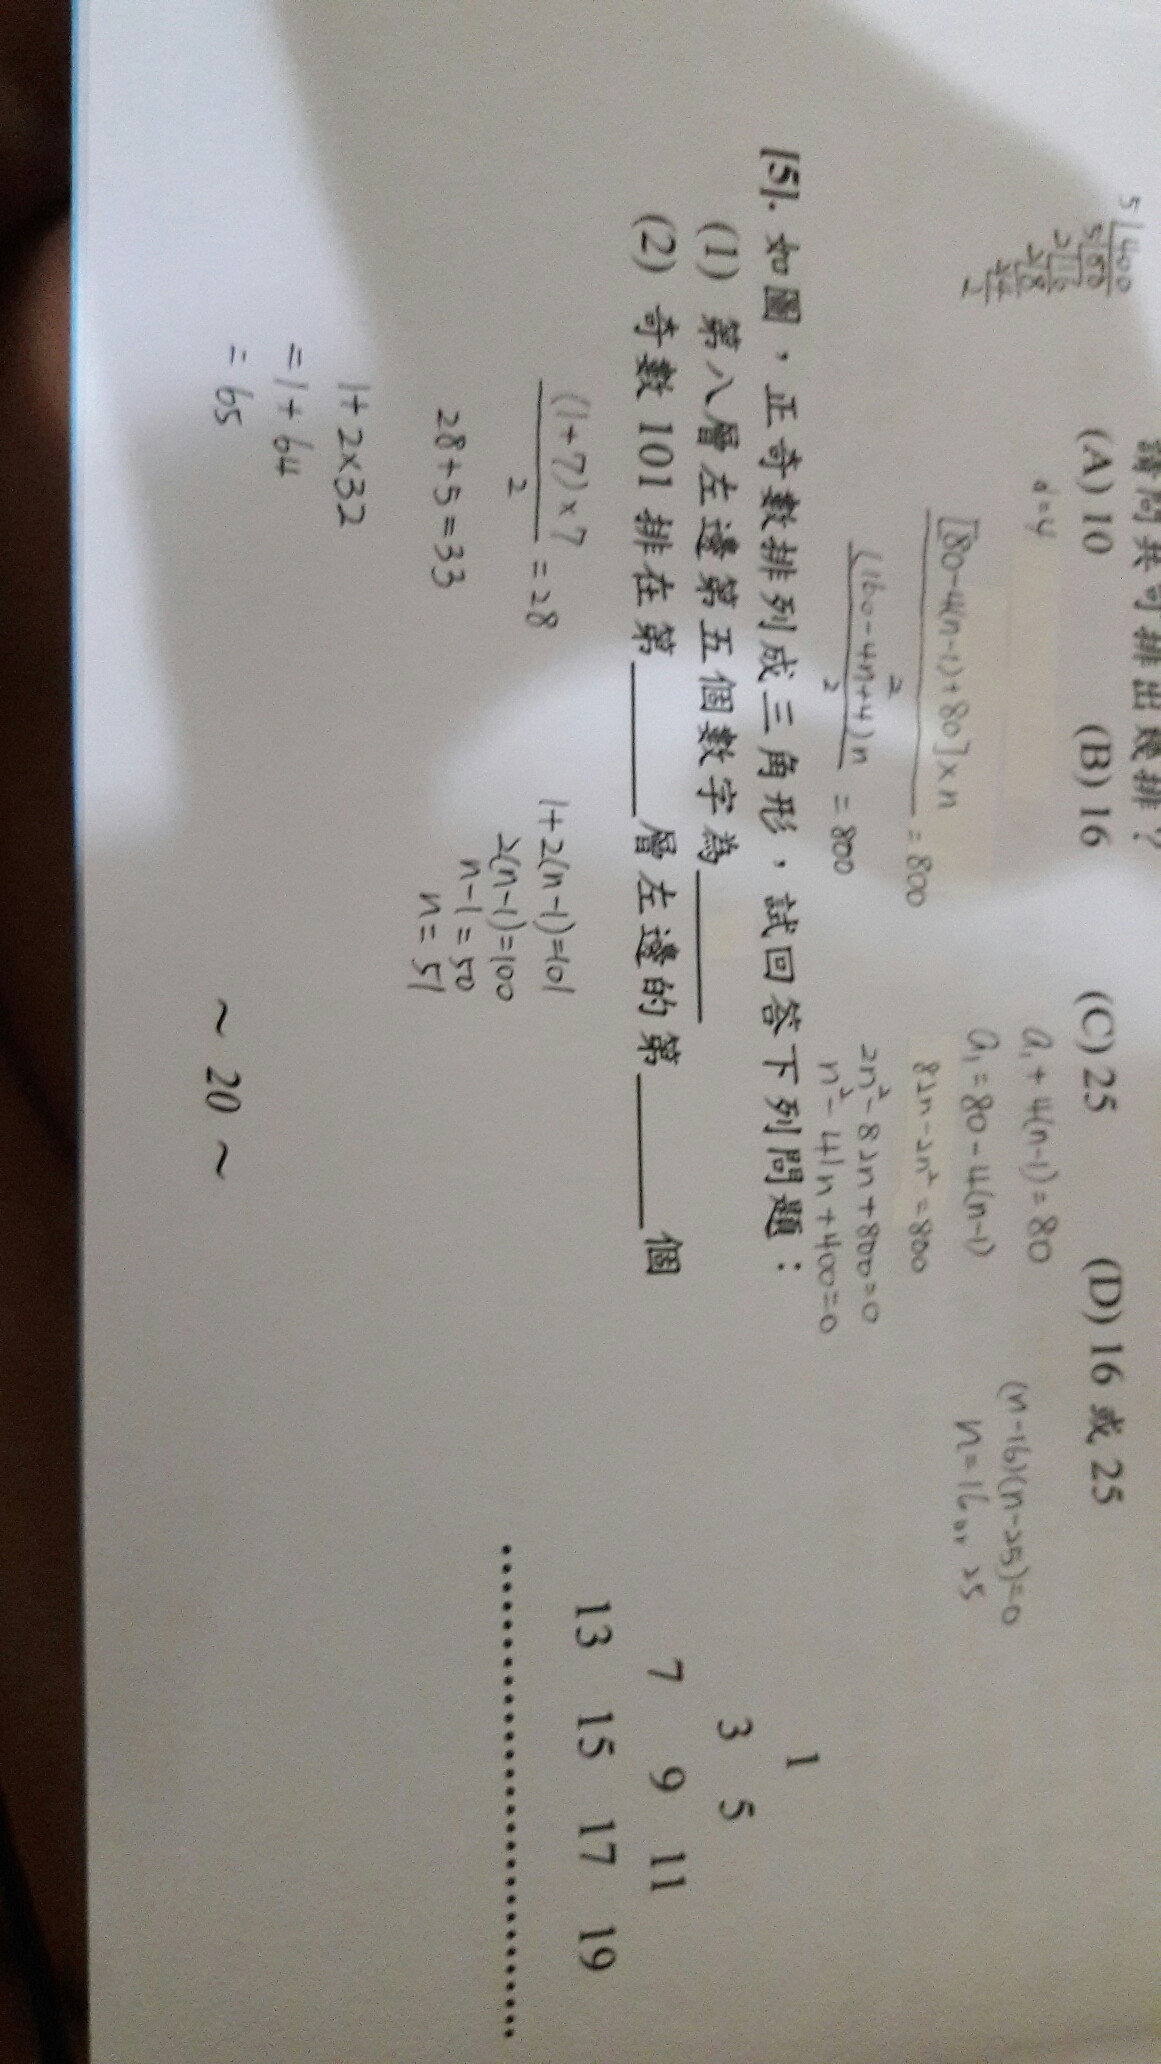 請問共可排出幾排？
(A) 10 (B) 16 (C) 25 (D) 16 或 25
5|400
5|80
2|16
2|8
2|4
2
d=4
[80-4(n-1)+80]×n
2
=800
(160-4n+4)n
2
=800
a₁+4(n-1)=80
a₁=80-4(n-1)
82n-2n²=800
2n²-82n+800=0
n²-41n+400=0
(n-16)(n-25)=0
n=16 or 25
15. 如圖，正奇數排列成三角形，試回答下列問題：
(1) 第八層左邊第五個數字為______
(2) 奇數 101 排在第______層左邊的第______個
1
3 5
7 9 11
13 15 17 19
..............................
(1+7)×7
2
=28
28+5=33
1+2×32
=1+64
=65
1+2(n-1)=101
2(n-1)=100
n-1=50
n=51
~ 20 ~